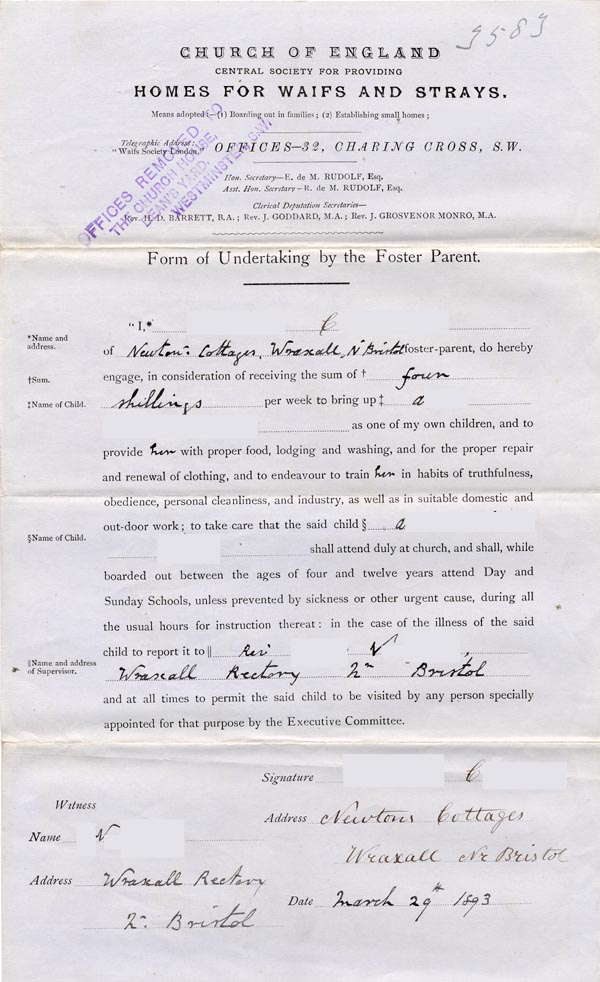 3583
CHURCH OF ENGLAND
CENTRAL SOCIETY FOR PROVIDING
HOMES FOR WAIFS AND STRAYS.
Means adopted:—(1) Boarding out in families; (2) Establishing small homes;
Telegraphic Address:
"Waifs Society London."
OFFICES—32, CHARING CROSS, S.W.
OFFICES REMOVED TO
THE CHURCH HOUSE,
DEANS YARD,
WESTMINSTER, S.W.
Hon. Secretary—E. de M. RUDOLF, Esq.
Asst. Hon. Secretary—R. de M. RUDOLF, Esq.
Clerical Deputation Secretaries—
Rev. H. D. BARRETT, B.A.; Rev. J. GODDARD, M.A.; Rev. J. GROSVENOR MONRO, M.A.
Form of Undertaking by the Foster Parent.
"I,* C
*Name and address.
of Newtons Cottages, Wraxall, Nr Bristol foster-parent, do hereby
†Sum.
engage, in consideration of receiving the sum of † four
‡Name of Child.
shillings per week to bring up ‡ a
as one of my own children, and to
provide her with proper food, lodging and washing, and for the proper repair
and renewal of clothing, and to endeavour to train her in habits of truthfulness,
obedience, personal cleanliness, and industry, as well as in suitable domestic and
out-door work; to take care that the said child § a
§Name of Child.
shall attend duly at church, and shall, while
boarded out between the ages of four and twelve years attend Day and
Sunday Schools, unless prevented by sickness or other urgent cause, during all
the usual hours for instruction thereat: in the case of the illness of the said
child to report it to || Rev V ;
||Name and address of Supervisor.
Wraxall Rectory Nr Bristol
and at all times to permit the said child to be visited by any person specially
appointed for that purpose by the Executive Committee.
Signature C
Witness
Address Newtons Cottages
Name V
Wraxall Nr Bristol
Address Wraxall Rectory
Date March 29th 1893
Nr Bristol